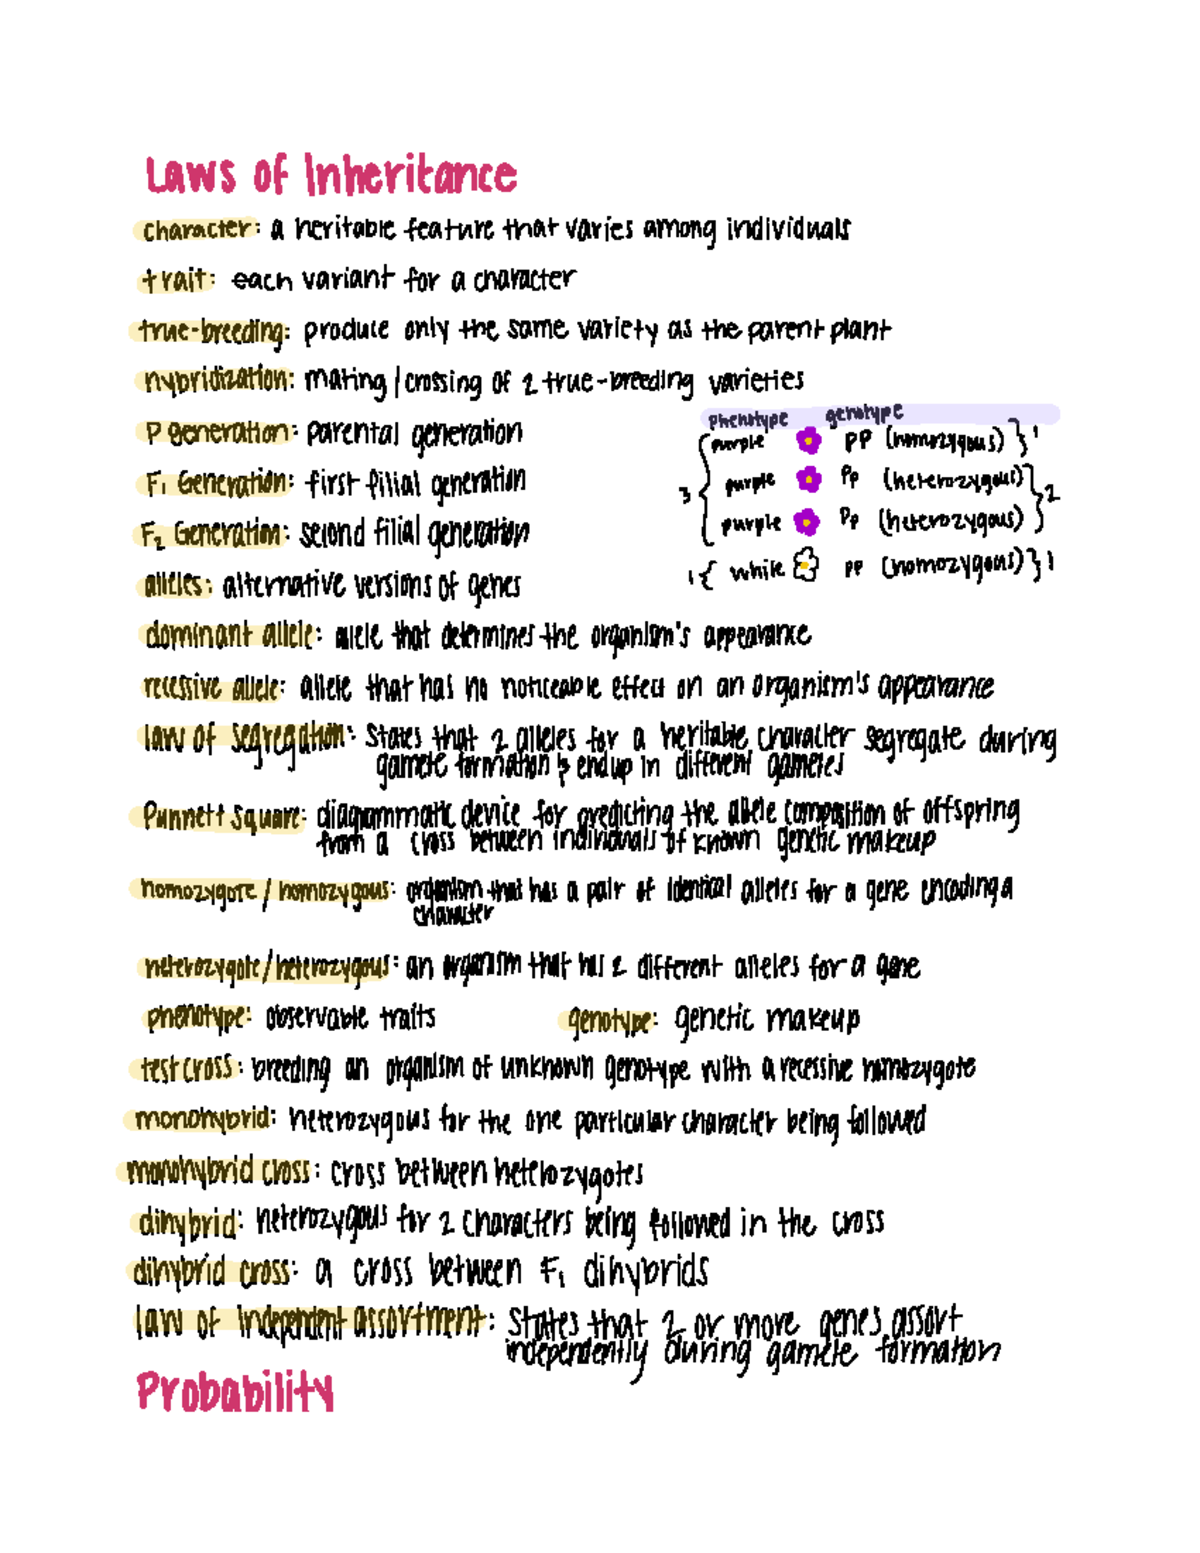 Laws of Inheritance
character: a heritable feature that varies among individuals
trait: each variant for a character
true-breeding: produce only the same variety as the parent plant
hybridization: mating/crossing of 2 true-breeding varieties
P generation: parental generation
F₁ Generation: first filial generation
F₂ Generation: second filial generation
alleles: alternative versions of genes
phenotype genotype
purple PP (homozygous) } 1
3 { purple Pp (heterozygous)
purple Pp (heterozygous) } 2
1 { while pp (homozygous) } 1
dominant allele: allele that determines the organism's appearance
recessive allele: allele that has no noticeable effect on an organism's appearance
law of segregation: States that 2 alleles for a heritable character segregate during
gamete formation & end up in different gametes
Punnett Square: diagrammatic device for predicting the allele composition of offspring
from a cross between individuals of known genetic makeup
homozygote / homozygous: organism that has a pair of identical alleles for a gene encoding a
character
heterozygote/heterozygous: an organism that has 2 different alleles for a gene
phenotype: observable traits genotype: genetic makeup
testcross: breeding an organism of unknown genotype with a recessive homozygote
monohybrid: heterozygous for the one particular character being followed
monohybrid cross: cross between heterozygotes
dihybrid: heterozygous for 2 characters being followed in the cross
dihybrid cross: a cross between F₁ dihybrids
law of independent assortment: States that 2 or more genes assort
independently during gamete formation
Probability